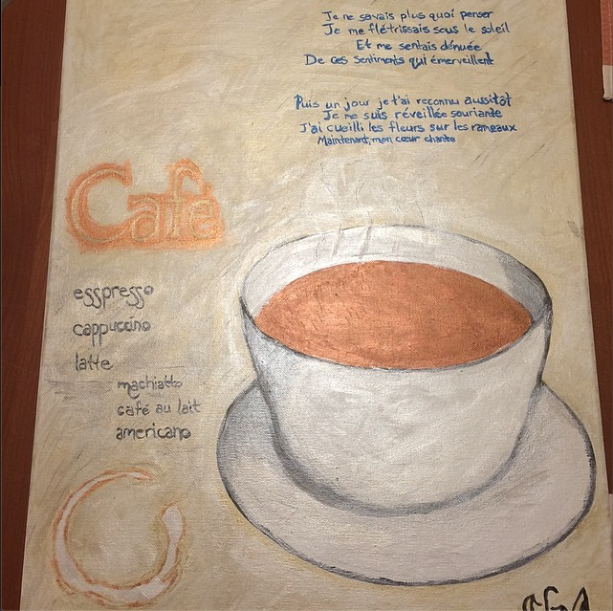 Je ne savais plus quoi penser
Je me flétrissais sous le soleil
Et me sentais dénuée
De ces sentiments qui émerveillent
Puis un jour je t'ai reconnu aussitôt
Je me suis réveillée souriante
J'ai cueilli les fleurs sur les rameaux
Maintenant, mon cœur chante
Café
esspresso
cappuccino
latte
machiatto
café au lait
americano